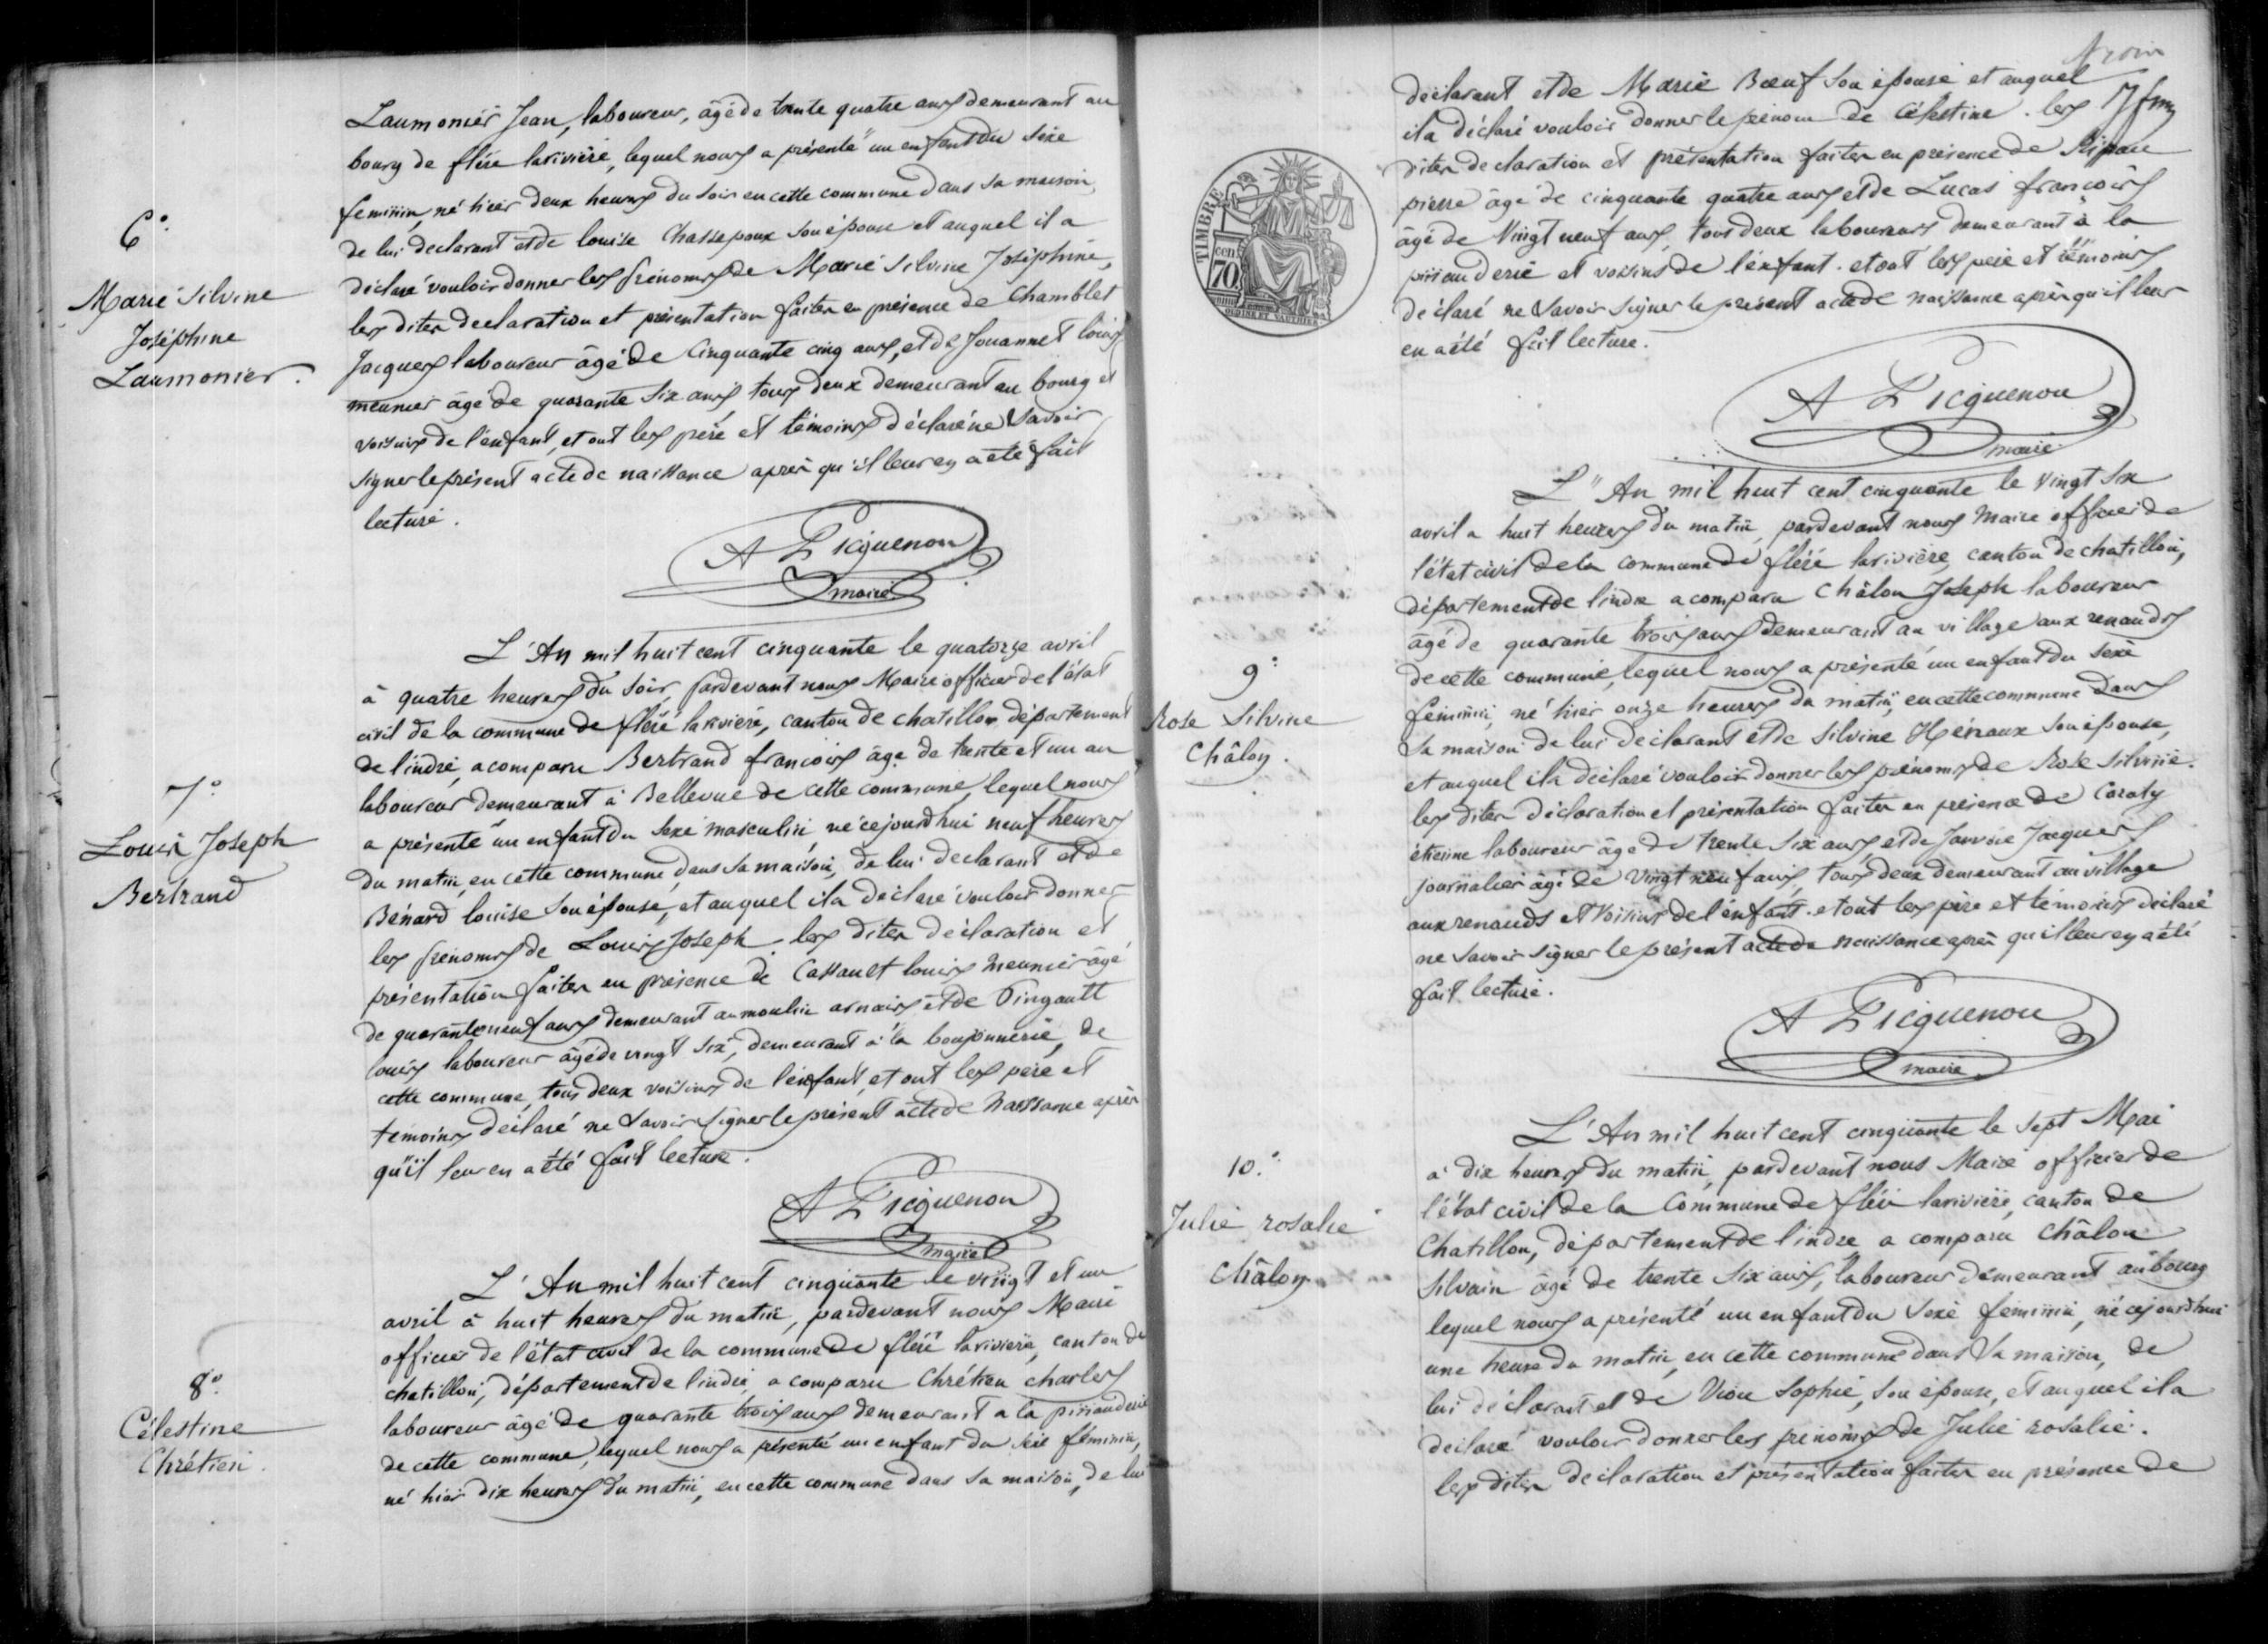 Laumonier Jean, laboureur, âgé de trente quatre ans demeurant au
bourg de fléré larivière, lequel nous a présenté un enfant du sexe
feminin, né hier deux heures du soir en cette commune dans sa maison,
de lui declarant et de louise Chassepoux son épouse et auquel il a
déclaré vouloir donner les prénoms de Marie Silvine Joséphine,
les dites declaration et présentation faites en présence de Chamblet
Jacques laboureur âgé de Cinquante cinq ans, et de Jouannet louis
meunier âgé de quarante six ans, tous deux demeurant au bourg et
voisins de l'enfant, et ont les père et témoins déclaré ne Savoir
signer le présent acte de naissance après qu'il leur en a été fait
lecture.
6°.
Marie Silvine
Joséphine
Laumonier.
A Picquenon
maire
L'An mil huit cent cinquante le quatorze avril
à quatre heures du soir, pardevant nous Maire officier de l'état
civil de la commune de fléré larivière, canton de chatillon département
de l'indre, a comparu Bertrand francois âgé de trente et un an
laboureur demeurant à Bellevue de cette commune, lequel nous
a présenté un enfant du sexe masculin, né cejourdhui neuf heures
du matin, en cette commune, dans sa maison, de lui declarant et de
Bénard louise son épouse, et auquel il a déclaré vouloir donner
les prénoms de Louis Joseph. les dites déclaration et
présentation faites en présence de Cassault louis meunier âgé
de quarante neuf ans demeurant au moulin arnais et de Pingault
louis laboureur âgé de vingt six, demeurant à la boujonnerie, de
cette commune, tous deux voisins de l'enfant, et ont les père et
témoins déclaré ne savoir signer le présent acte de naissance après
qu'il leur en a été fait lecture.
7°
Louis Joseph
Bertrand
A Picquenon
maire
L'An mil huit cent cinquante le vingt et un
avril à huit heures du matin, pardevant nous Maire
officier de l'état civil de la commune de fléré larivière, canton de
chatillon, département de l'indre, a comparu Chrétien charles
laboureur âgé de quarante trois ans demeurant a la
de cette commune, lequel nous a présenté un enfant du sexe féminin,
né hier dix heures du matin, en cette commune dans sa maison, de lui
8°.
Célestine
Chrétien.
déclarant et de Marie Bœuf son épouse et auquel
il a déclaré vouloir donner le prénom de Célestine. les
dites declaration et présentation faites en présence de
pierre âgé de cinquante quatre ans et de Lucas francois
âgé de Vingt neuf ans, tous deux laboureurs demeurant à la
et voisins de l'enfant. et ont les père et témoins
déclaré ne Savoir signer le présent acte de naissance après qu'il leur
en a été fait lecture.
TIMBRE
70 cen.
OUDINÉ ET VAUTHIER
A Picquenon
maire
L'An mil huit cent cinquante le vingt six
avril a huit heures du matin, pardevant nous Maire officier de
l'état civil de la commune de fléré larivière, canton de chatillon,
département de l'indre a comparu Châlon Joseph laboureur
âgé de quarante trois ans demeurant au village aux renauds
de cette commune, lequel nous a présenté un enfant du sexe
féminin, né hier onze heures du matin, en cette commune dans
sa maison de lui declarant et de Silvine Hénaux son épouse,
et auquel il a déclaré vouloir donner les prénoms de Rose Silvine.
les dites déclaration et présentation faites en présence de
étienne laboureur âgé de trente six ans et de Jacques
journalier âgé de vingt neuf ans, tous deux demeurant au village
aux renauds et voisins de l'enfant. et ont les père et témoins déclaré
ne savoir signer le présent acte de naissance après qu'il leur en a été
fait lecture.
9°
Rose Silvine
Châlon.
A Picquenon
maire
L'An mil huit cent cinquante le sept Mai
à dix heures du matin, pardevant nous Maire officier de
l'état civil de la Commune de fléré larivière, canton de
Chatillon, département de l'indre a comparu Châlon
Silvain âgé de trente six ans, laboureur demeurant au bourg
lequel nous a présenté un enfant du sexe féminin, né cejourdhui
une heure du matin, en cette commune dans sa maison, de
lui déclarant et de Viou Sophie, son épouse, et auquel il a
déclaré vouloir donner les prénoms de Julie rosalie.
les dites déclaration et présentation faites en présence de
10.°
Julie rosalie
Châlon